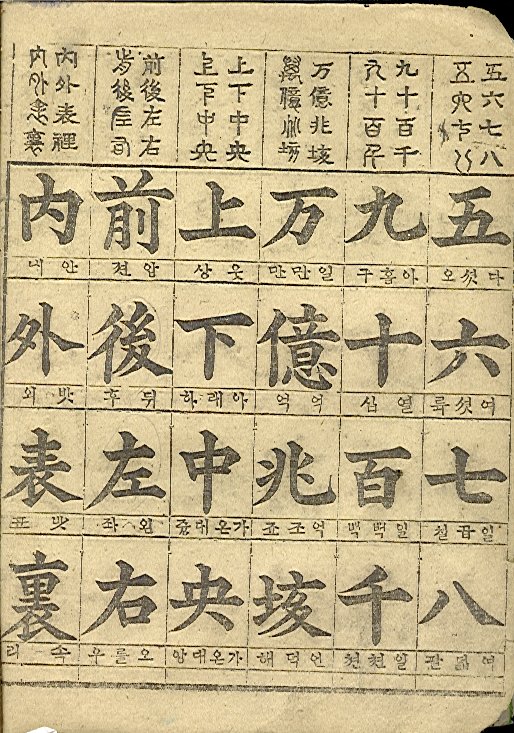 五六七八
九十百千
万億兆垓
上下中央
前後左右
內外表裡
五
다섯오
六
여섯륙
七
일곱칠
八
여덟팔
九
아흡구
十
열십
百
일백백
千
일쳔쳔
万
일만만
億
억억
兆
억조죠
垓
언덕해
上
웃상
下
아래하
中
가온대즁
央
가온대앙
前
앞젼
後
뒤후
左
왼좌
右
오를우
內
안내
外
밧외
表
밧표
裏
속리